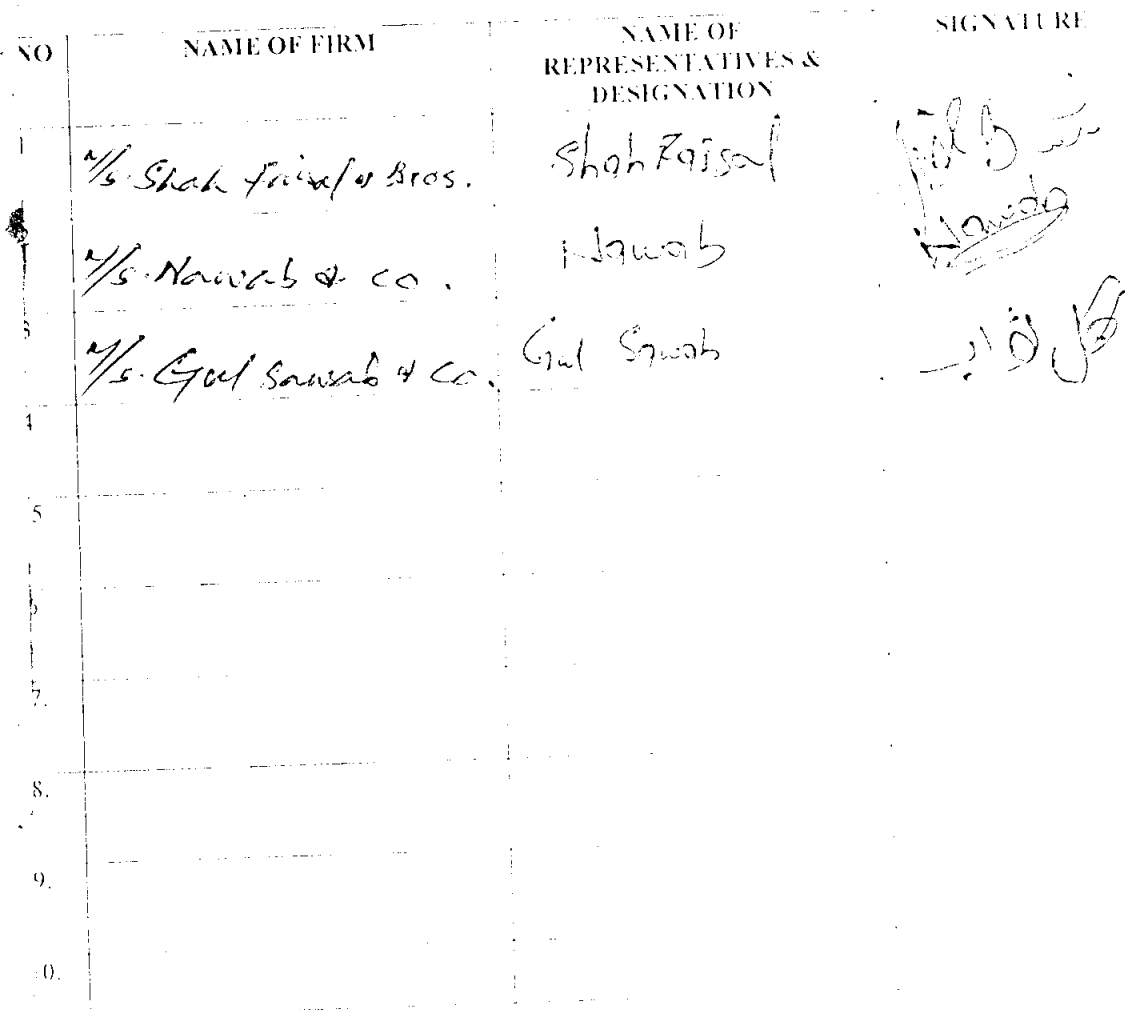 NO NAME OF FIRM NAME OF REPRESENTATIVES & DESIGNATION SIGNATURE
1 M/s. Shah Faisal & Bros. Shah Faisal
M/s. Nawab & co. Nawab Nawab
3 M/s. Gul Sawab & Co. Gul Sawab گل
4
5
6
7.
8.
9.
0.